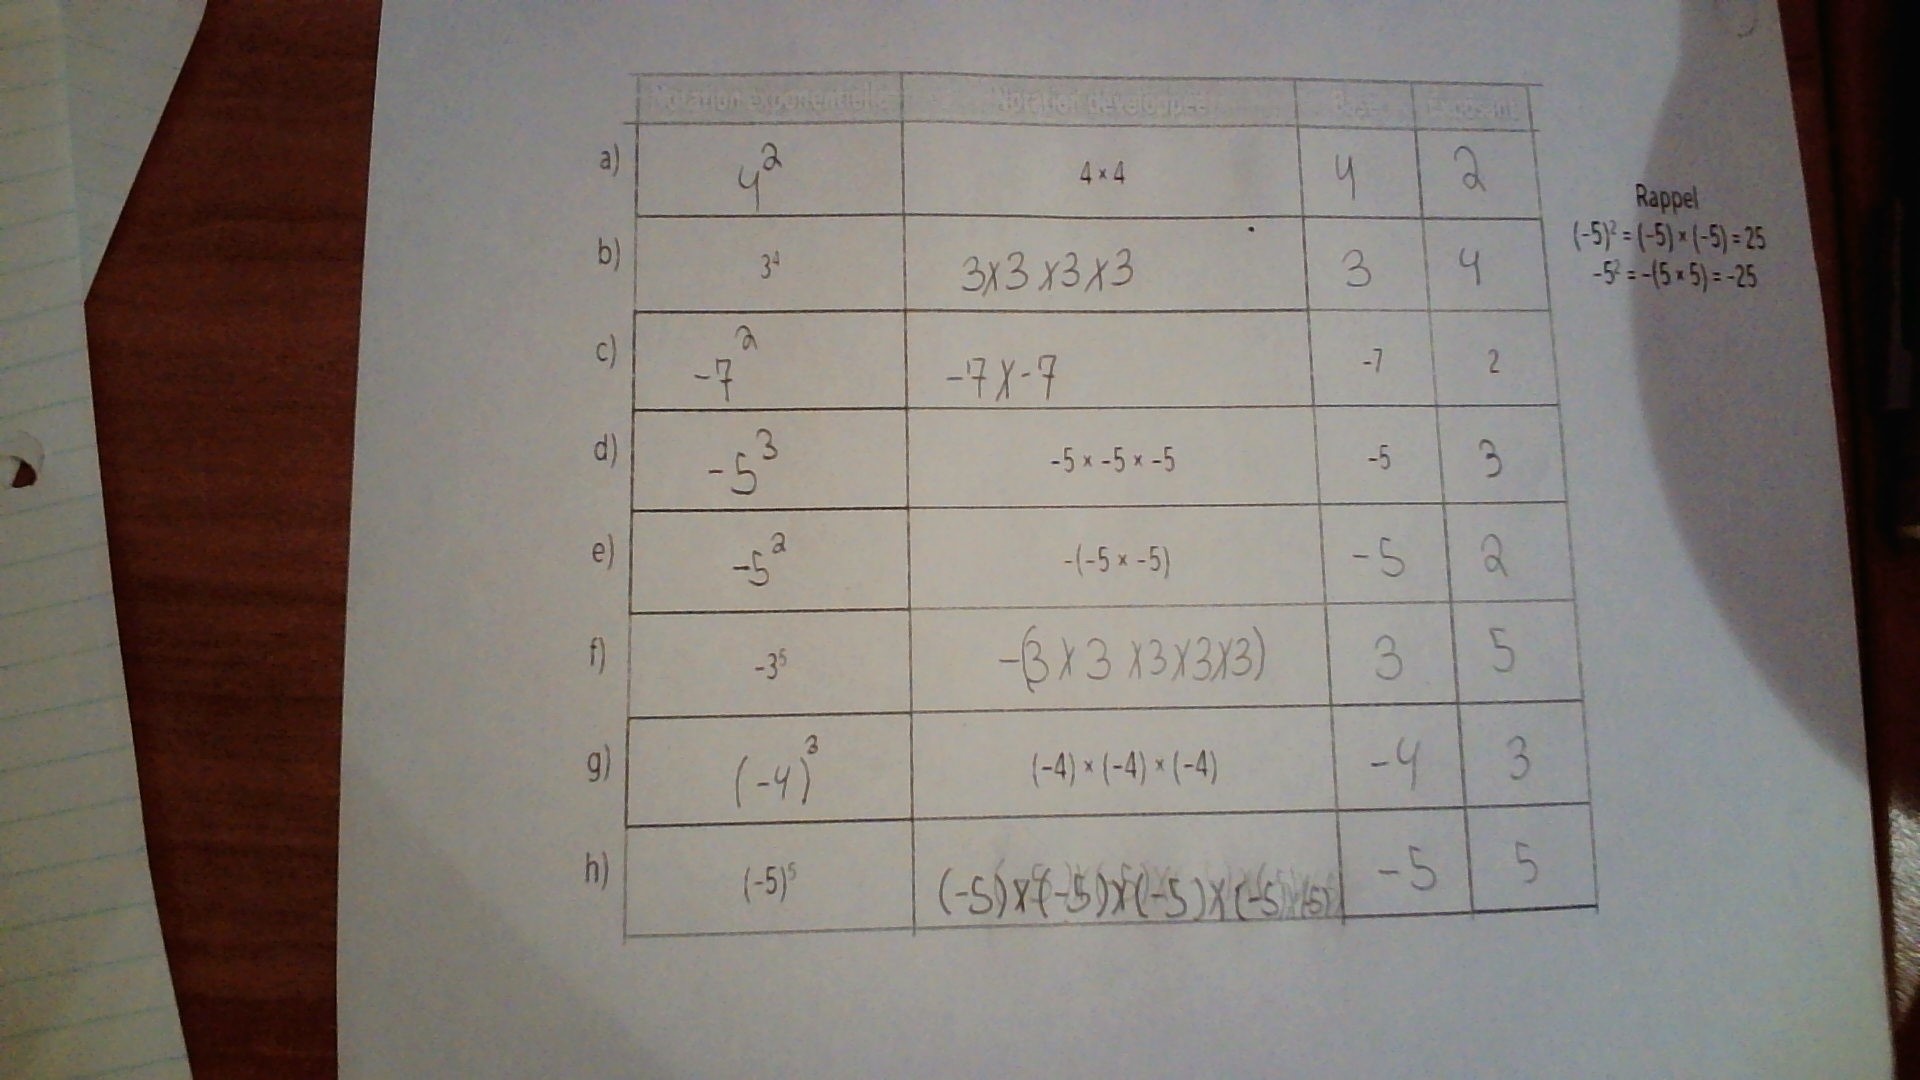 Notation exponentielle Notation développée Base Exposant
a) 4² 4 × 4 4 2
b) 3⁴ 3×3×3×3 3 4
c) -7² -7×-7 -7 2
d) -5³ -5 × -5 × -5 -5 3
e) -5² -(-5 × -5) -5 2
f) -3⁵ -(3×3×3×3×3) 3 5
g) (-4)³ (-4) × (-4) × (-4) -4 3
h) (-5)⁵ (-5)×(-5)×(-5)×(-5)×(-5) -5 5
Rappel
(-5)² = (-5) × (-5) = 25
-5² = -(5 × 5) = -25